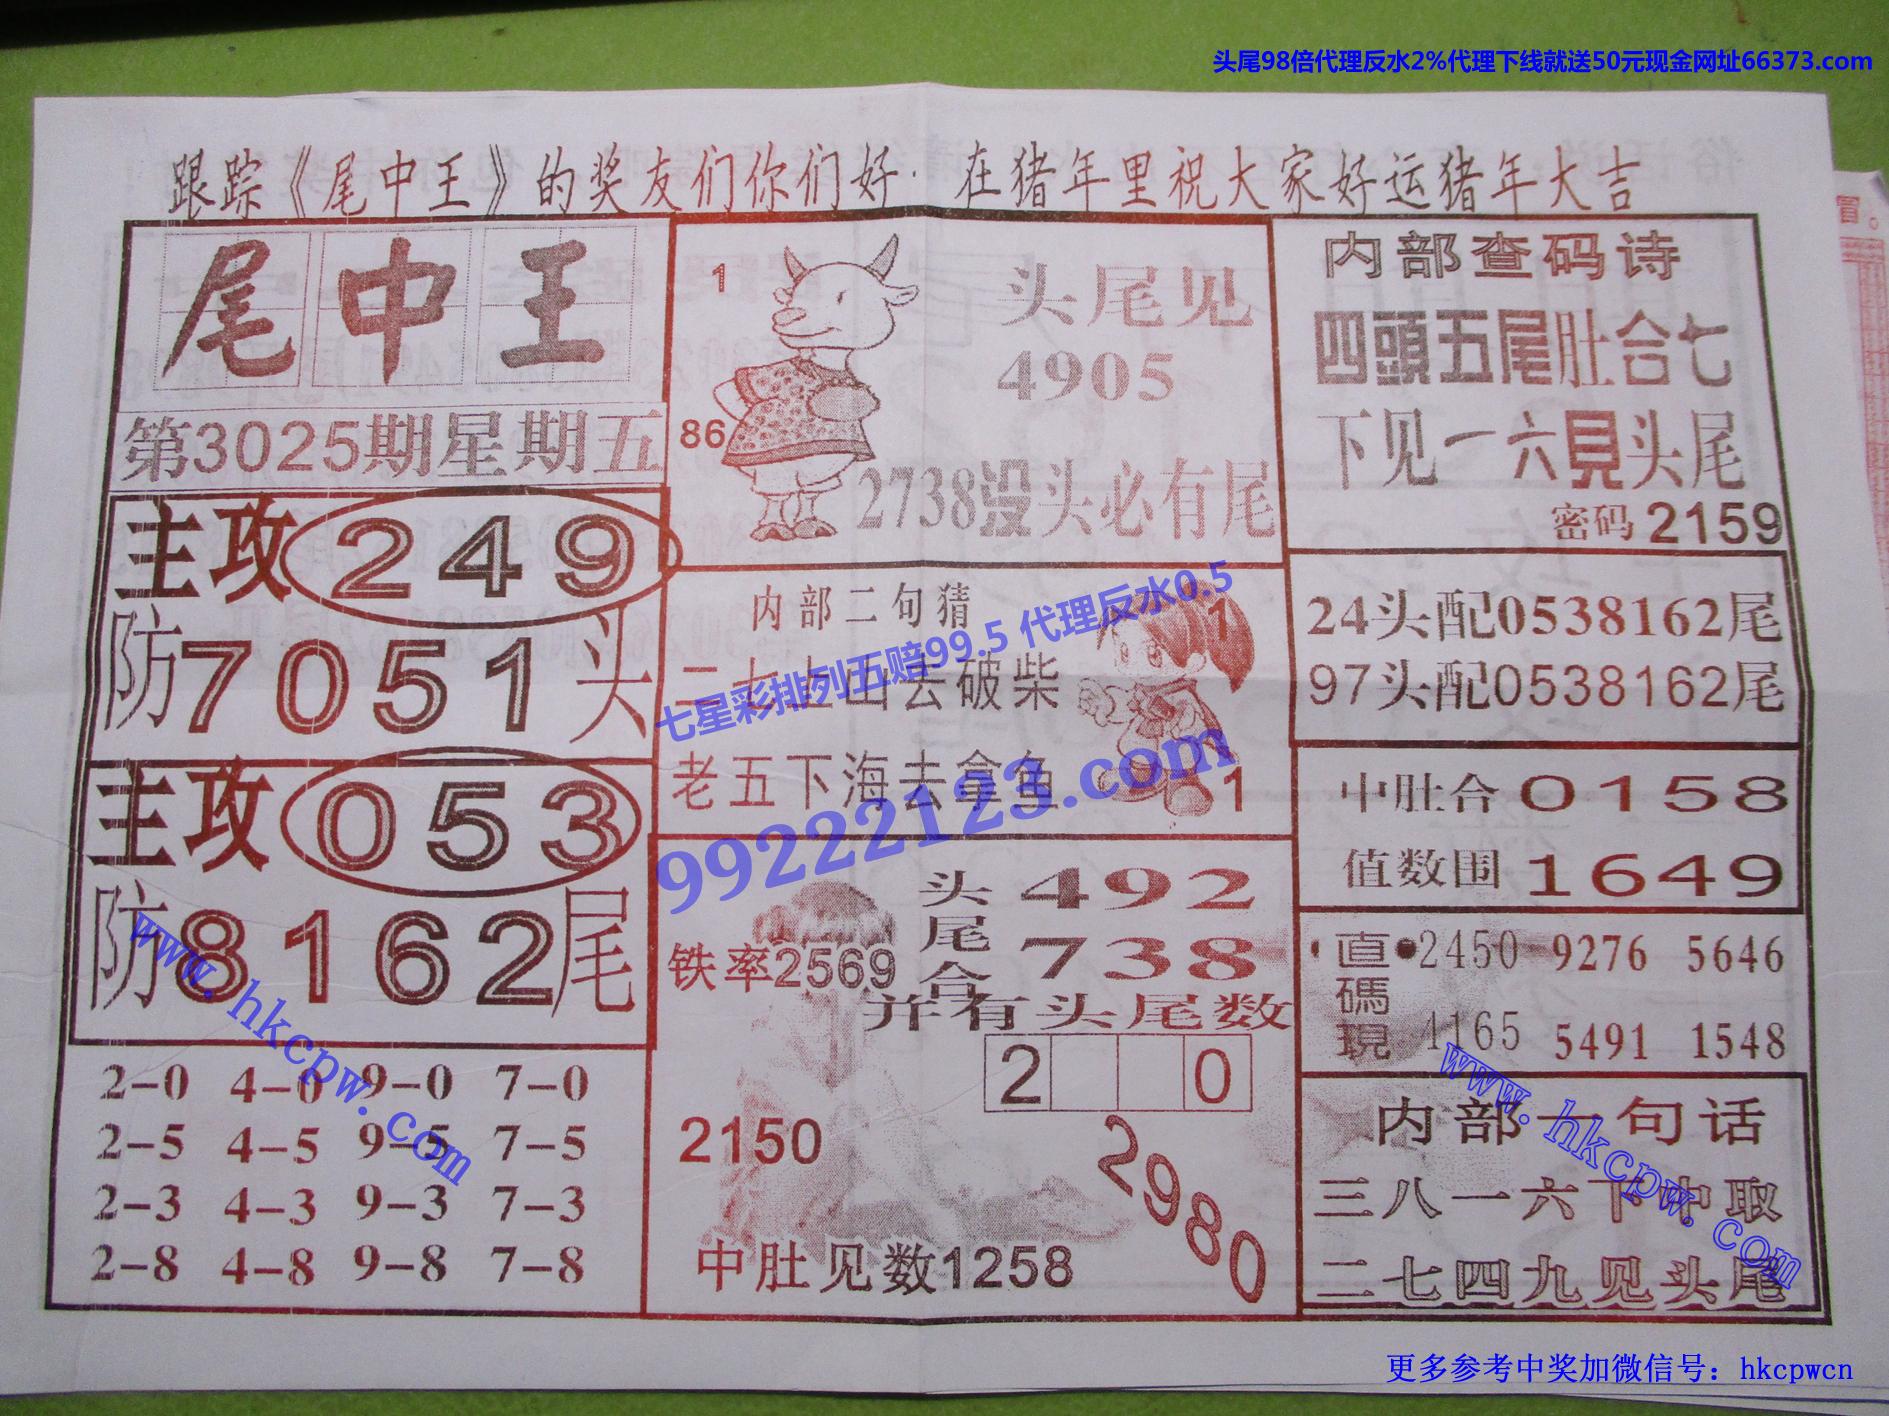 头尾98倍代理反水2%代理下线就送50元现金网址66373.com
跟踪《尾中王》的奖友们你们好.在猪年里祝大家好运猪年大吉
尾中王
第3025期星期五
主攻249
防7051头
主攻053
防8162尾
2-0 4-0 9-0 7-0
2-5 4-5 9-5 7-5
2-3 4-3 9-3 7-3
2-8 4-8 9-8 7-8
1
86
头尾见
4905
2738没头必有尾
内部二句猜
二七上山去破柴
老五下海去拿鱼
1
1
七星彩排列五赔99.5 代理反水0.5
99222123.com
头尾合
492
738
铁率2569
并有头尾数
2 0
2150
2980
中肚见数1258
内部查码诗
四頭五尾肚合七
下见一六見头尾
密码2159
24头配0538162尾
97头配0538162尾
中肚合0158
值数围1649
直碼現
2450 9276 5646
4165 5491 1548
内部一句话
三八一六下中取
二七四九见头尾
www.hkcpw.com
www.hkcpw.com
更多参考中奖加微信号：hkcpwcn